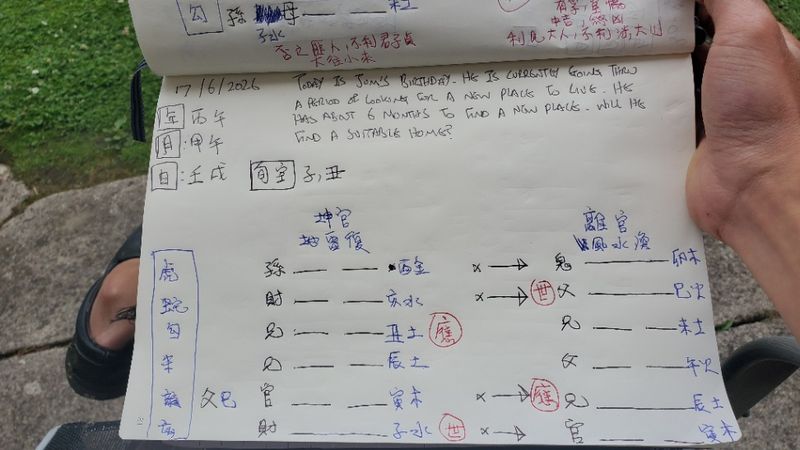 勾 孫 母 未土
子水
否之匪人,不利君子貞
大往小來
有孚,窒惕
中吉,終凶
利見大人,不利涉大川
17/6/2026
TODAY IS JOM'S BIRTHDAY. HE IS CURRENTLY GOING THRU
A PERIOD OF LOOKING FOR A NEW PLACE TO LIVE. HE
HAS ABOUT 6 MONTHS TO FIND A NEW PLACE. WILL HE
FIND A SUITABLE HOME?
年 丙午
月:甲午
日:壬戌 旬空 子,丑
坤宮 離宮
地雷復 風水渙
虎 孫 酉金 x→ 鬼 卯木
蛇 財 亥水 x→ 世 父 巳火
勾 兄 丑土 應 兄 未土
兄 辰土 父 午火
父巳 官 寅木 x→ 應 兄 辰土
財 子水 世 x→ 官 寅木